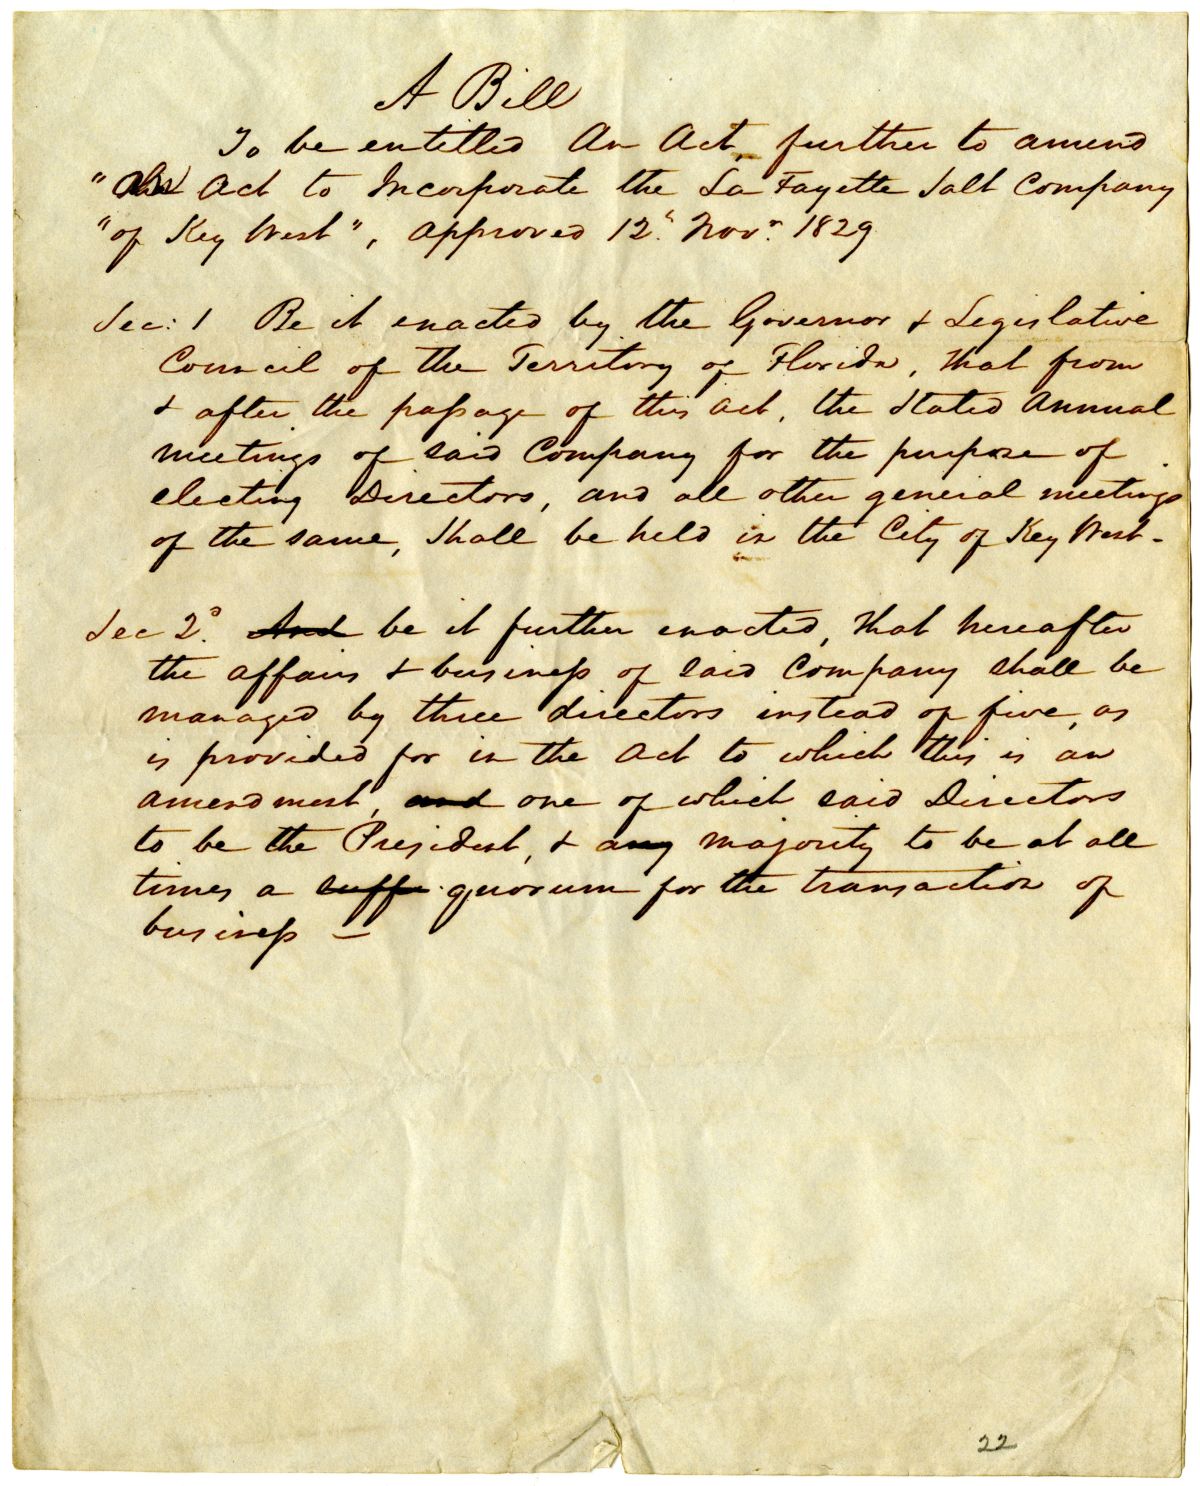 A Bill
To be entitled An Act, further to amend
"An Act to Incorporate the La Fayette Salt Company
"of Key West", approved 12th. Novr. 1829
Sec: 1 Be it enacted by the Governor & Legislative
Council of the Territory of Florida, that from
& after the passage of this act, the stated Annual
meetings of said Company for the purpose of
electing Directors, and all other general meetings
of the same, shall be held in the City of Key West-
Sec 2d. And be it further enacted, that hereafter
the affairs & business of said Company shall be
managed by three directors instead of five, as
is provided for in the act to which this is an
amendment, and one of which said Directors
to be the President, & any majority to be at all
times a suffi quorum for the transaction of
business —
22